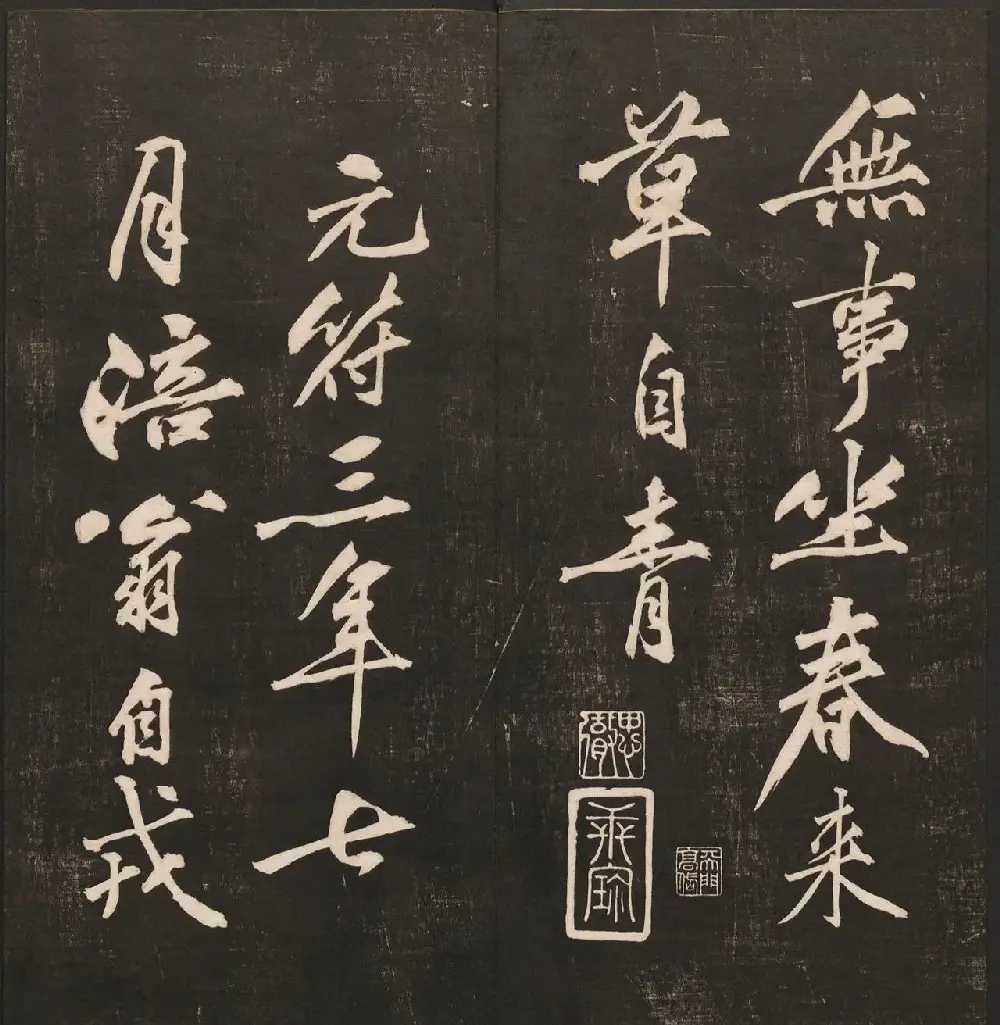 無事坐春来
草自青
元符三年七
月涪翁自戒